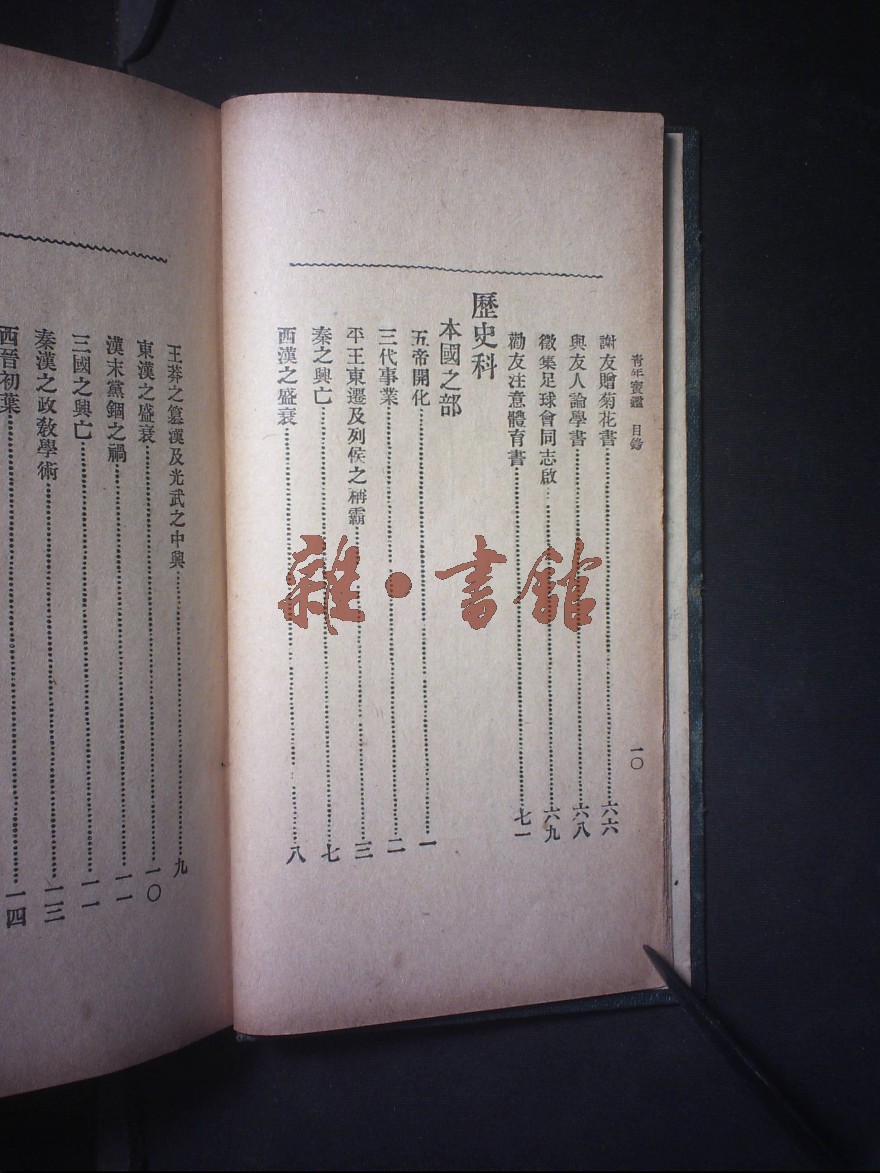 青年寶鑑 目錄 一〇
謝友贈菊花書 六六
與友人論學書 六八
徵集足球會同志啟 六九
勸友注意體育書 七一
歷史科
本國之部
五帝開化 一
三代事業 二
平王東遷及列侯之稱霸 三
秦之興亡 七
西漢之盛衰 八
王莽之篡漢及光武之中興 九
東漢之盛衰 一〇
漢末黨錮之禍 一一
三國之興亡 一一
秦漢之政敎學術 一三
西晉初葉 一四
雜·書館